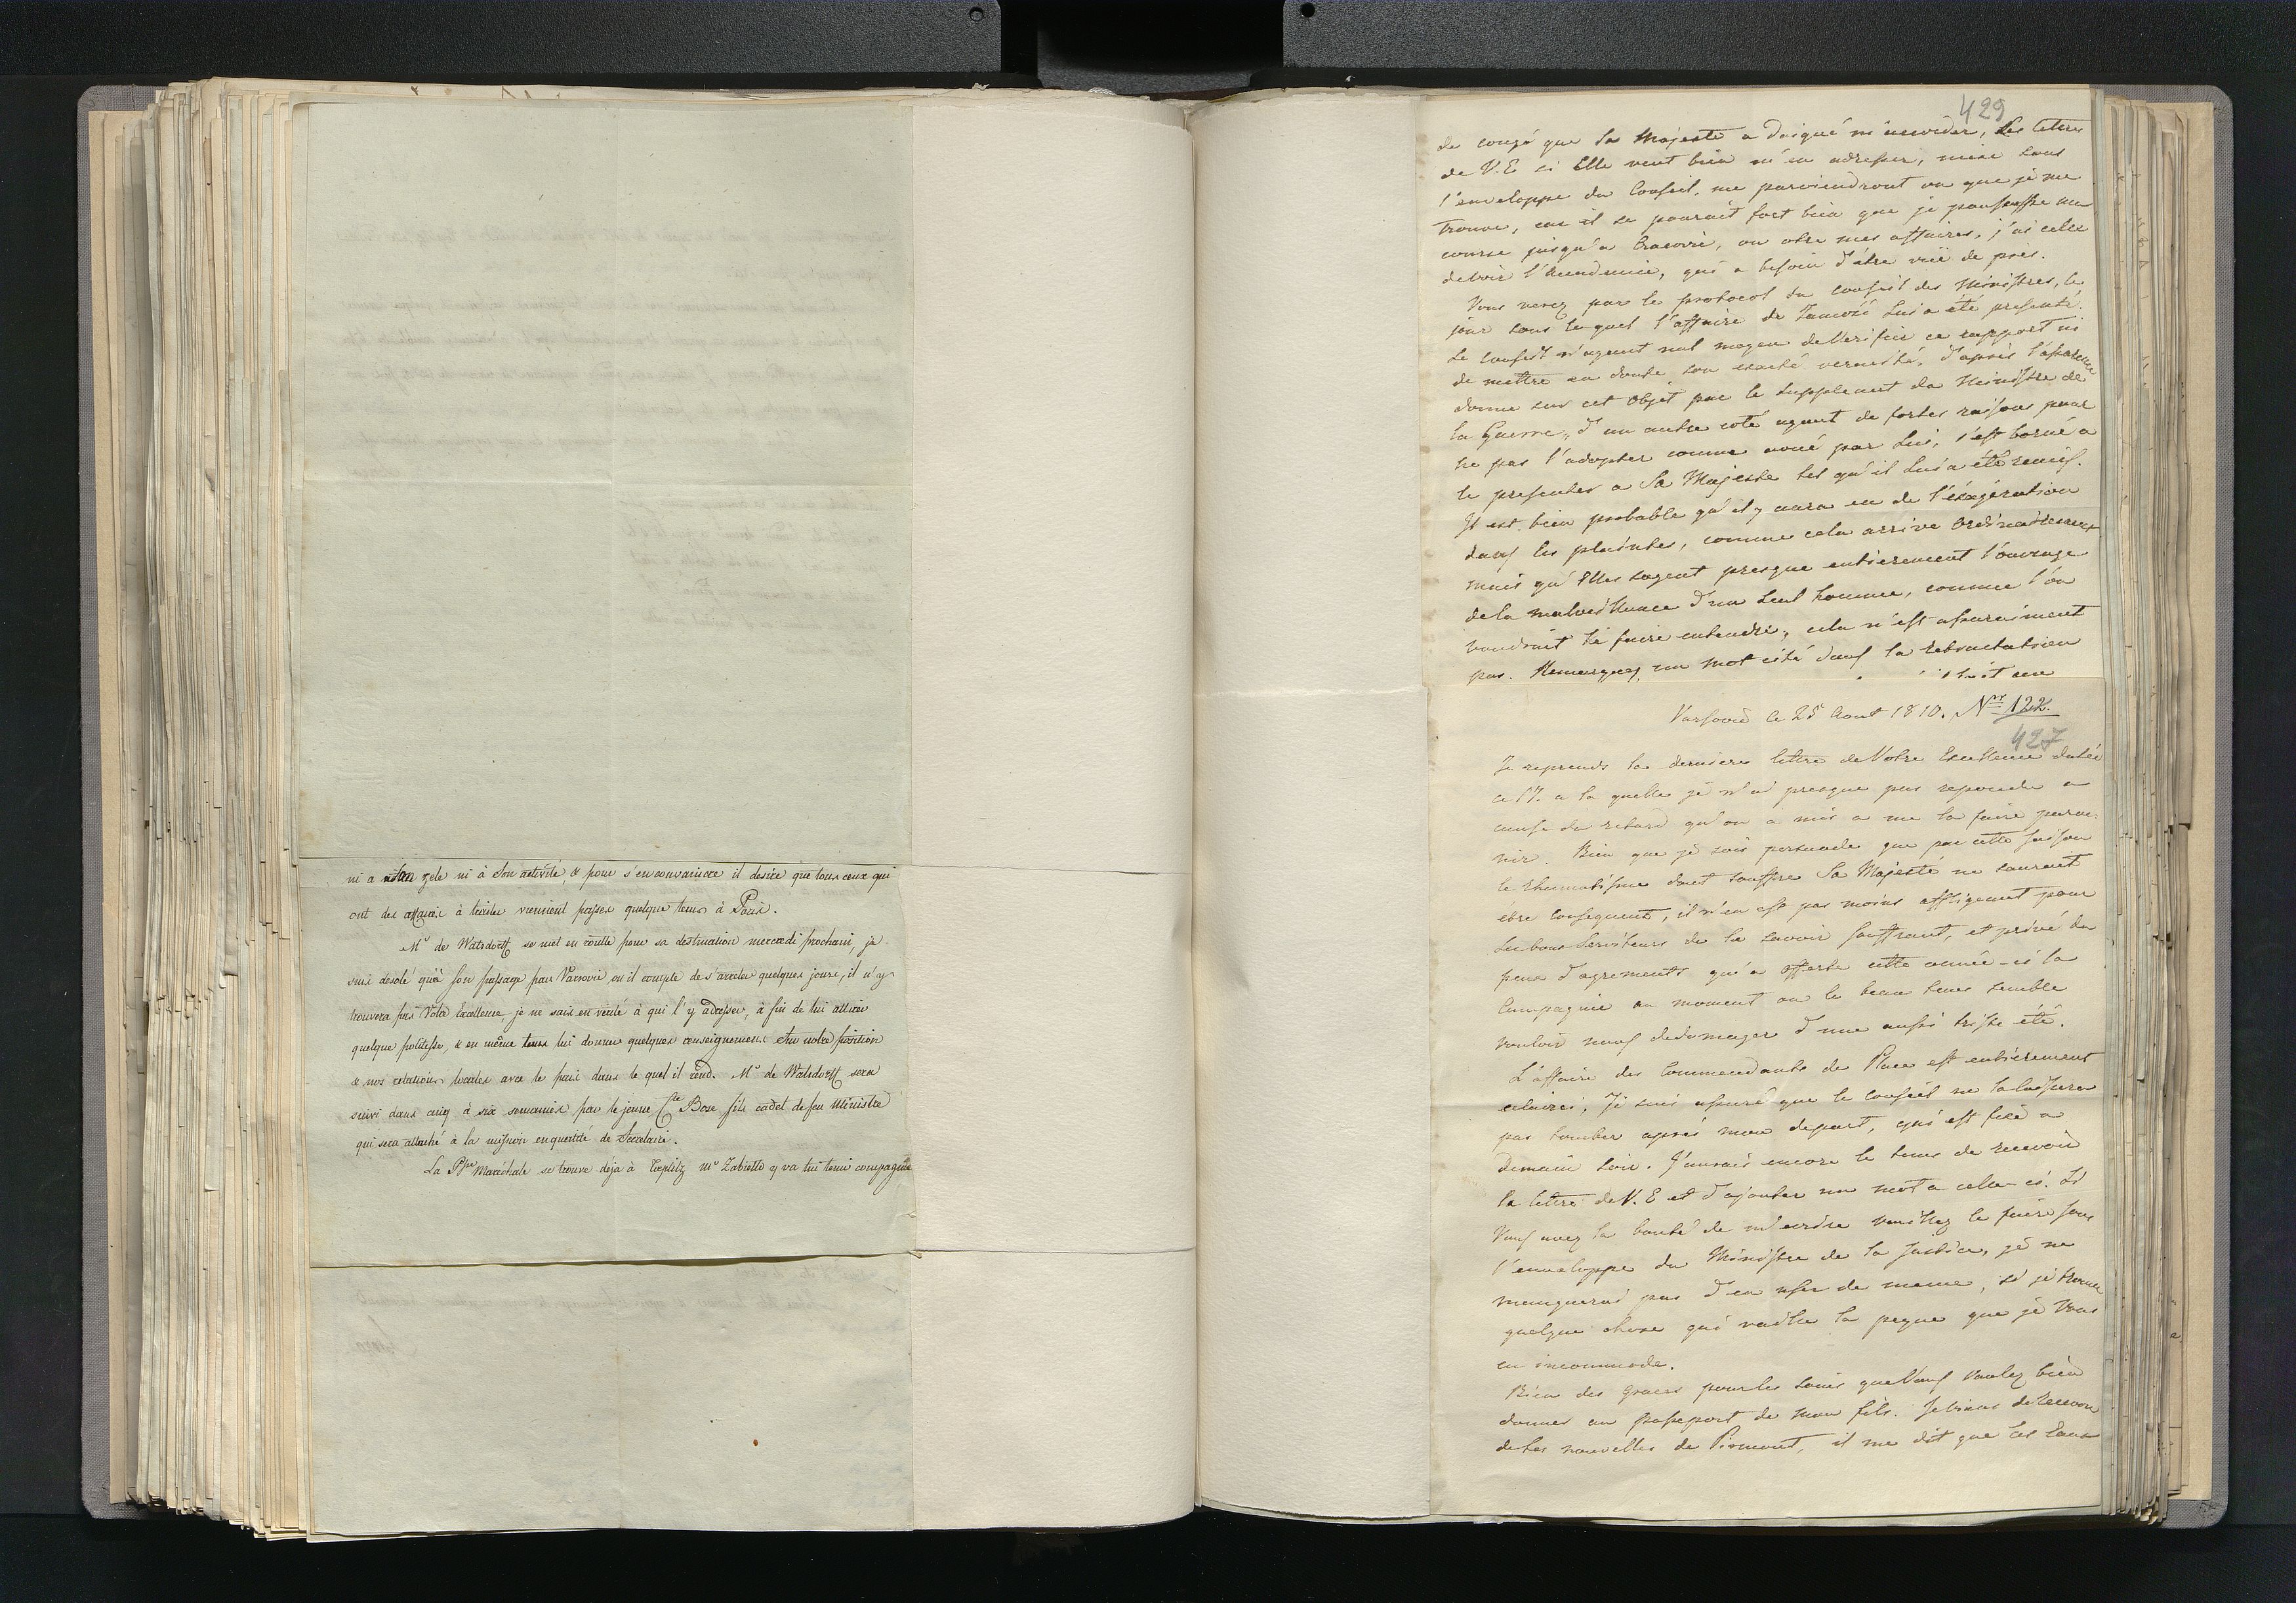 ni a son zele ni à son activité, & pour s'en convaincre il desire que tous ceux qui
ont des affaires à traiter viennent passer quelque tems à Paris.
Mr de Watzdorff se met en route pour sa destination mercredi prochain, je
suis desolé qu'à son passage par Varsovie ou il compte de s'arreter quelques jours, il n'y
trouvera pas Votre Excellence, je ne sais en verité à qui l'y adresser, à fin de lui attirer
quelque politesse, & en même tems lui donner quelques renseignemens sur notre position
& nos relations locales avec le pais dans le quel il rend. Mr de Watzdorff sera
suivi dans cinq à six semaines par le jeune Cte Bose fils cadet de feu Ministre
qui sera attaché à la mission en qualité de Secretaire.
La Psse Maréchale se trouve déja à Töplitz mr Zabiello y va lui tenir compagnie
429
de congé que Sa Majesté a daigné m'accorder, Les lettres
de V.E si Elle veut bien m'en adresser, mise sous
l'enveloppe du Conseil, me parviendront ou que je me
trouve, car il se pourait fort bien que je poussasse ma
course jusqu'a Cracovie, ou otre mes affaires, j'ai celle
de voir l'Academie, qui a besoin d'etre vuë de près.
Vous verez par le protocol du conseil des Ministres, le
jour sous lequel l'affaire de Zamość lui a été presenté.
Le conseil n'ayant nul moyen de Verifier ce rapport ni
de mettre en doute son exacte veracité, d'après l'assurance
donné sur cet objet par le supplement du Ministre de
la Guerre, d'un autre coté ayant de fortes raisons pour
ne pas l'adopter comme avoué par Lui, s'est borné a
le presenter a Sa Majesté tel qu'il lui a été remis.
Il est bien probable qu'il y aura eu de l'éxagération
dans les plaintes, comme cela arrive Ordinairement
mais qu'Elles soyent presque entierement l'ouvrage
de la malveillance d'un seul homme, comme l'on
voudrait le faire entendre, cela n'est assurement
pas. Remarquez un mot cité dans la retractation
Varsovie le 25 Aout 1810. Nr 122.
427
Je reprends la derniere lettre de Votre Excellence datée
ce 17. a la quelle je n'ai presque pas repondu a
cause du retard qu'on a mis a me la faire parve-
nir. Bien que je sois persuade que par cette saison
le rhumatisme dont souffre Sa Majesté ne saurait
être consequent, il n'en est pas moins affligeant pour
Ses bons Serviteurs de le savoir souffrant, et privé du
peux d'agrements qu'a offerte cette année-ci la
Campagne au moment ou le beau tems semble
vouloir nous dedomager d'une aussi triste été.
L'affaire des Commendants de Place est entierement
eclaircie, Je suis assuré que le conseil ne la laissera
pas tomber après mon depart, qui est fixé a
demain soir. J'aurais encore le tems de recevoir
la lettre de V.E et d'ajouter un mot a celle-ci. Si
Vous avez la bonté de m'ecrire veuillez le faire sous
l'enveloppe du Ministre de la Justice, je ne
manquerai pas d'en user de meme, si je trouve
quelque chose qui vaille la peine que je Vous
en incommode.
Bien des Graces pour les soins que Vous voulez bien
donner au passeport de mon fils. Je viens de recevoir
de ses nouvelles de Pirmont, il me dit que les Eaux